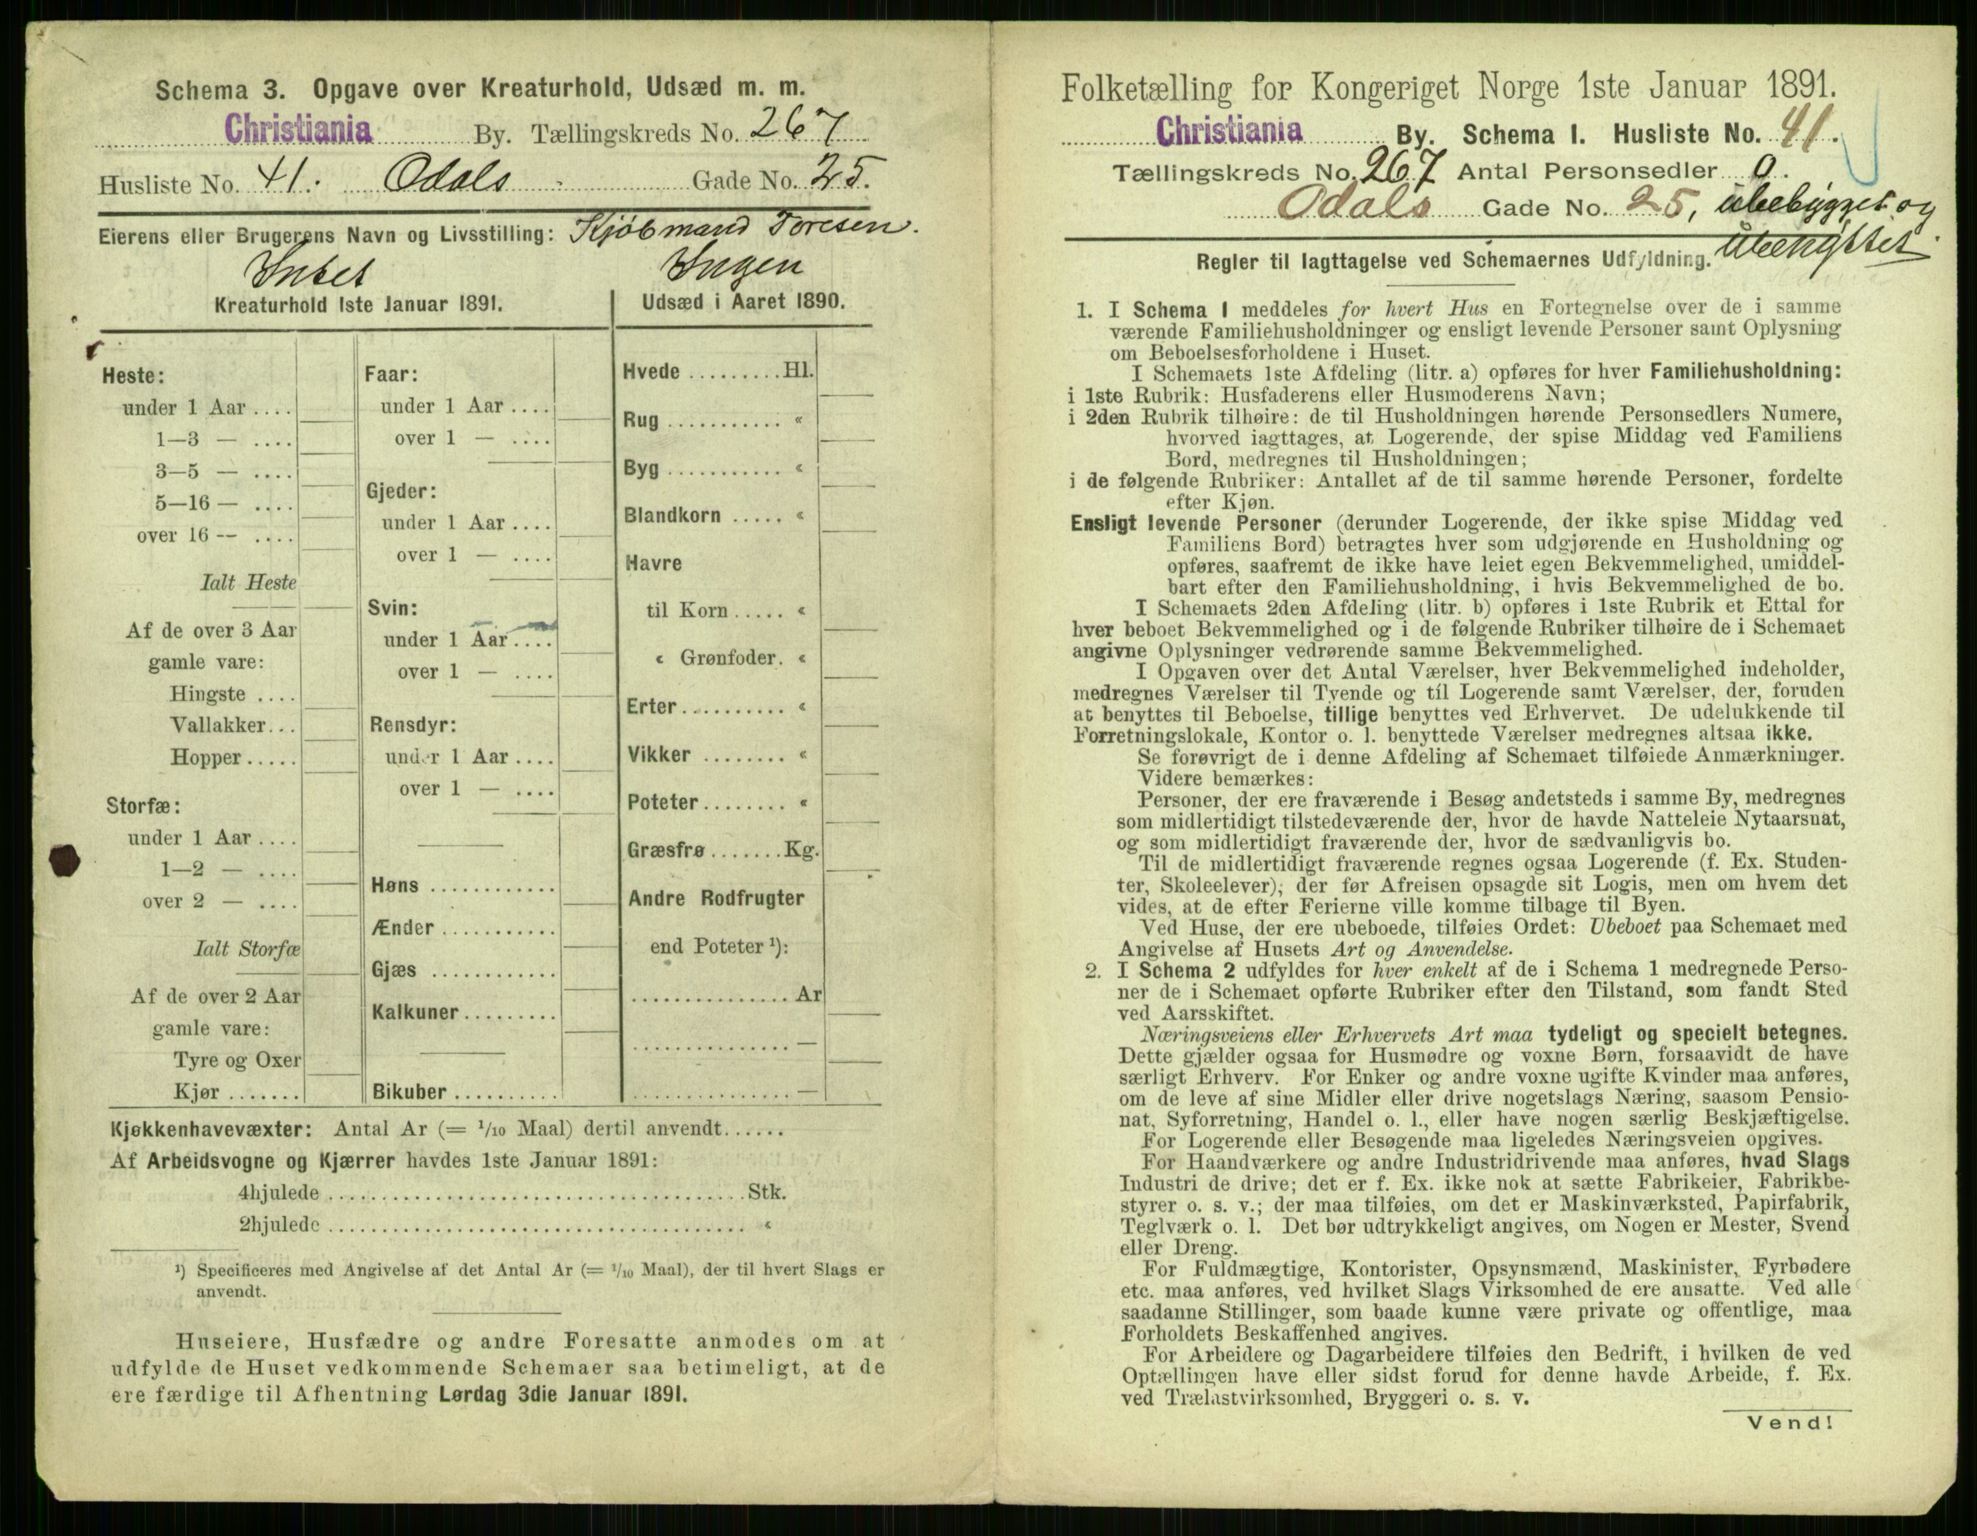 Schema 3. Opgave over Kreaturhold, Udsæd m. m.
Christiania By. Tællingskreds No. 267
Husliste No. 41. Odals Gade No. 25.
Eierens eller Brugerens Navn og Livsstilling: Kjøbmand Toresen.
Intet Ingen
Kreaturhold 1ste Januar 1891. Udsæd i Aaret 1890.
Heste:
under 1 Aar ....
1—3 — ....
3—5 — ....
5—16 — ....
over 16 — ....
Ialt Heste
Af de over 3 Aar
gamle vare:
Hingste ....
Vallakker...
Hopper.....
Storfæ:
under 1 Aar ....
1—2 — ....
over 2 — ....
Ialt Storfæ
Af de over 2 Aar
gamle vare:
Tyre og Oxer
Kjør .......
Faar:
under 1 Aar ....
over 1 — ....
Gjeder:
under 1 Aar ....
over 1 — ....
Svin:
under 1 Aar ....
over 1 — ....
Rensdyr:
under 1 Aar ....
over 1 — ....
Høns ............
Ænder ...........
Gjæs ............
Kalkuner.........
Bikuber ..........
Hvede .........Hl.
Rug ........... «
Byg ........... «
Blandkorn ..... «
Havre
til Korn ..... «
« Grønfoder. «
Erter.......... «
Vikker ........ «
Poteter........ «
Græsfrø.......Kg.
Andre Rodfrugter
end Poteter ¹):
............... Ar
............... —
............... —
Kjøkkenhavevæxter: Antal Ar (= 1/10 Maal) dertil anvendt......
Af Arbeidsvogne og Kjærrer havdes 1ste Januar 1891:
4hjulede ........................................Stk.
2hjulede ........................................ «
¹) Specificeres med Angivelse af det Antal Ar (= 1/10 Maal), der til hvert Slags er
anvendt.
Huseiere, Husfædre og andre Foresatte anmodes om at
udfylde de Huset vedkommende Schemaer saa betimeligt, at de
ere færdige til Afhentning Lørdag 3die Januar 1891.
Folketælling for Kongeriget Norge 1ste Januar 1891.
Christiania By. Schema 1. Husliste No. 41.
Tællingskreds No. 267 Antal Personsedler 0.
Odals Gade No. 25, ubebygget og
ubenyttet.
Regler til Iagttagelse ved Schemaernes Udfyldning.
1. I Schema 1 meddeles for hvert Hus en Fortegnelse over de i samme
værende Familiehusholdninger og ensligt levende Personer samt Oplysning
om Beboelsesforholdene i Huset.
I Schemaets 1ste Afdeling (litr. a) opføres for hver Familiehusholdning:
i 1ste Rubrik: Husfaderens eller Husmoderens Navn;
i 2den Rubrik tilhøire: de til Husholdningen hørende Personsedlers Numere,
hvorved iagttages, at Logerende, der spise Middag ved Familiens
Bord, medregnes til Husholdningen;
i de følgende Rubriker: Antallet af de til samme hørende Personer, fordelte
efter Kjøn.
Ensligt levende Personer (derunder Logerende, der ikke spise Middag ved
Familiens Bord) betragtes hver som udgjørende en Husholdning og
opføres, saafremt de ikke have leiet egen Bekvemmelighed, umiddel-
bart efter den Familiehusholdning, i hvis Bekvemmelighed de bo.
I Schemaets 2den Afdeling (litr. b) opføres i 1ste Rubrik et Ettal for
hver beboet Bekvemmelighed og i de følgende Rubriker tilhøire de i Schemaet
angivne Oplysninger vedrørende samme Bekvemmelighed.
I Opgaven over det Antal Værelser, hver Bekvemmelighed indeholder,
medregnes Værelser til Tyende og til Logerende samt Værelser, der, foruden
at benyttes til Beboelse, tillige benyttes ved Erhvervet. De udelukkende til
Forretningslokale, Kontor o. l. benyttede Værelser medregnes altsaa ikke.
Se forøvrigt de i denne Afdeling af Schemaet tilføiede Anmærkninger.
Videre bemærkes:
Personer, der ere fraværende i Besøg andetsteds i samme By, medregnes
som midlertidigt tilstedeværende der, hvor de havde Natteleie Nytaarsnat,
og som midlertidigt fraværende der, hvor de sædvanligvis bo.
Til de midlertidigt fraværende regnes ogsaa Logerende (f. Ex. Studen-
ter, Skoleelever), der før Afreisen opsagde sit Logis, men om hvem det
vides, at de efter Ferierne ville komme tilbage til Byen.
Ved Huse, der ere ubeboede, tilføies Ordet: Ubeboet paa Schemaet med
Angivelse af Husets Art og Anvendelse.
2. I Schema 2 udfyldes for hver enkelt af de i Schema 1 medregnede Perso-
ner de i Schemaet opførte Rubriker efter den Tilstand, som fandt Sted
ved Aarsskiftet.
Næringsveiens eller Erhvervets Art maa tydeligt og specielt betegnes.
Dette gjælder ogsaa for Husmødre og voxne Børn, forsaavidt de have
særligt Erhverv. For Enker og andre voxne ugifte Kvinder maa anføres,
om de leve af sine Midler eller drive nogetslags Næring, saasom Pensio-
nat, Syforretning, Handel o. l., eller have nogen særlig Beskjæftigelse.
For Logerende eller Besøgende maa ligeledes Næringsveien opgives.
For Haandværkere og andre Industridrivende maa anføres, hvad Slags
Industri de drive; det er f. Ex. ikke nok at sætte Fabrikeier, Fabrikbe-
styrer o. s. v.; der maa tilføies, om det er Maskinværksted, Papirfabrik,
Teglværk o. l. Det bør udtrykkeligt angives, om Nogen er Mester, Svend
eller Dreng.
For Fuldmægtige, Kontorister, Opsynsmænd, Maskinister, Fyrbødere
etc. maa anføres, ved hvilket Slags Virksomhed de ere ansatte. Ved alle
saadanne Stillinger, som baade kunne være private og offentlige, maa
Forholdets Beskaffenhed angives.
For Arbeidere og Dagarbeidere tilføies den Bedrift, i hvilken de ved
Optællingen have eller sidst forud for denne havde Arbeide, f. Ex.
ved Trælastvirksomhed, Bryggeri o. s. v.
Vend!